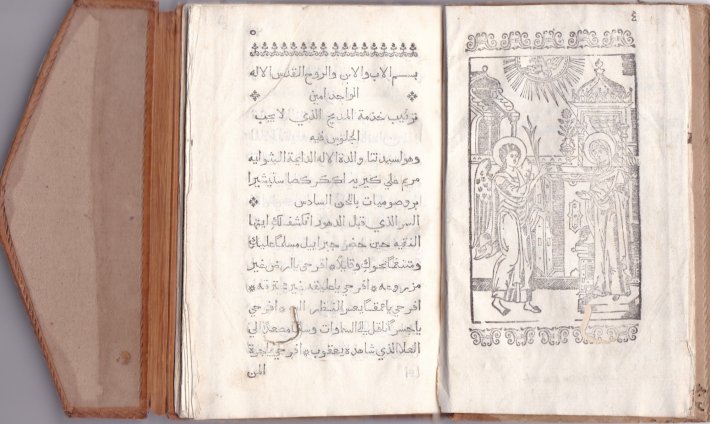 ٤
٥
بسم الاب والابن والروح القدس الاله
الواحد امين
ترتيب خدمة المديح الذي لا يجب
الجلوس فيه
وهو لسيدتنا والدة الاله الدايمة البتولية
مريم
بروصوميات باللحن السادس
السر الذي قبل الدهور انكشف لك ايتها
النقيه حين حضر جبراييل مسلما عليك
وهتف نحوك قايلا افرحي يا ارض غير
مزروعه افرحي يا عليقه غير محترقه
افرحي يا عمقا يعسر النظر افرحي
يا جسرا ناقلا الي السماوات وسلما مصعدا الي
العلا الذي شاهده يعقوب افرحي يا جرة
المن